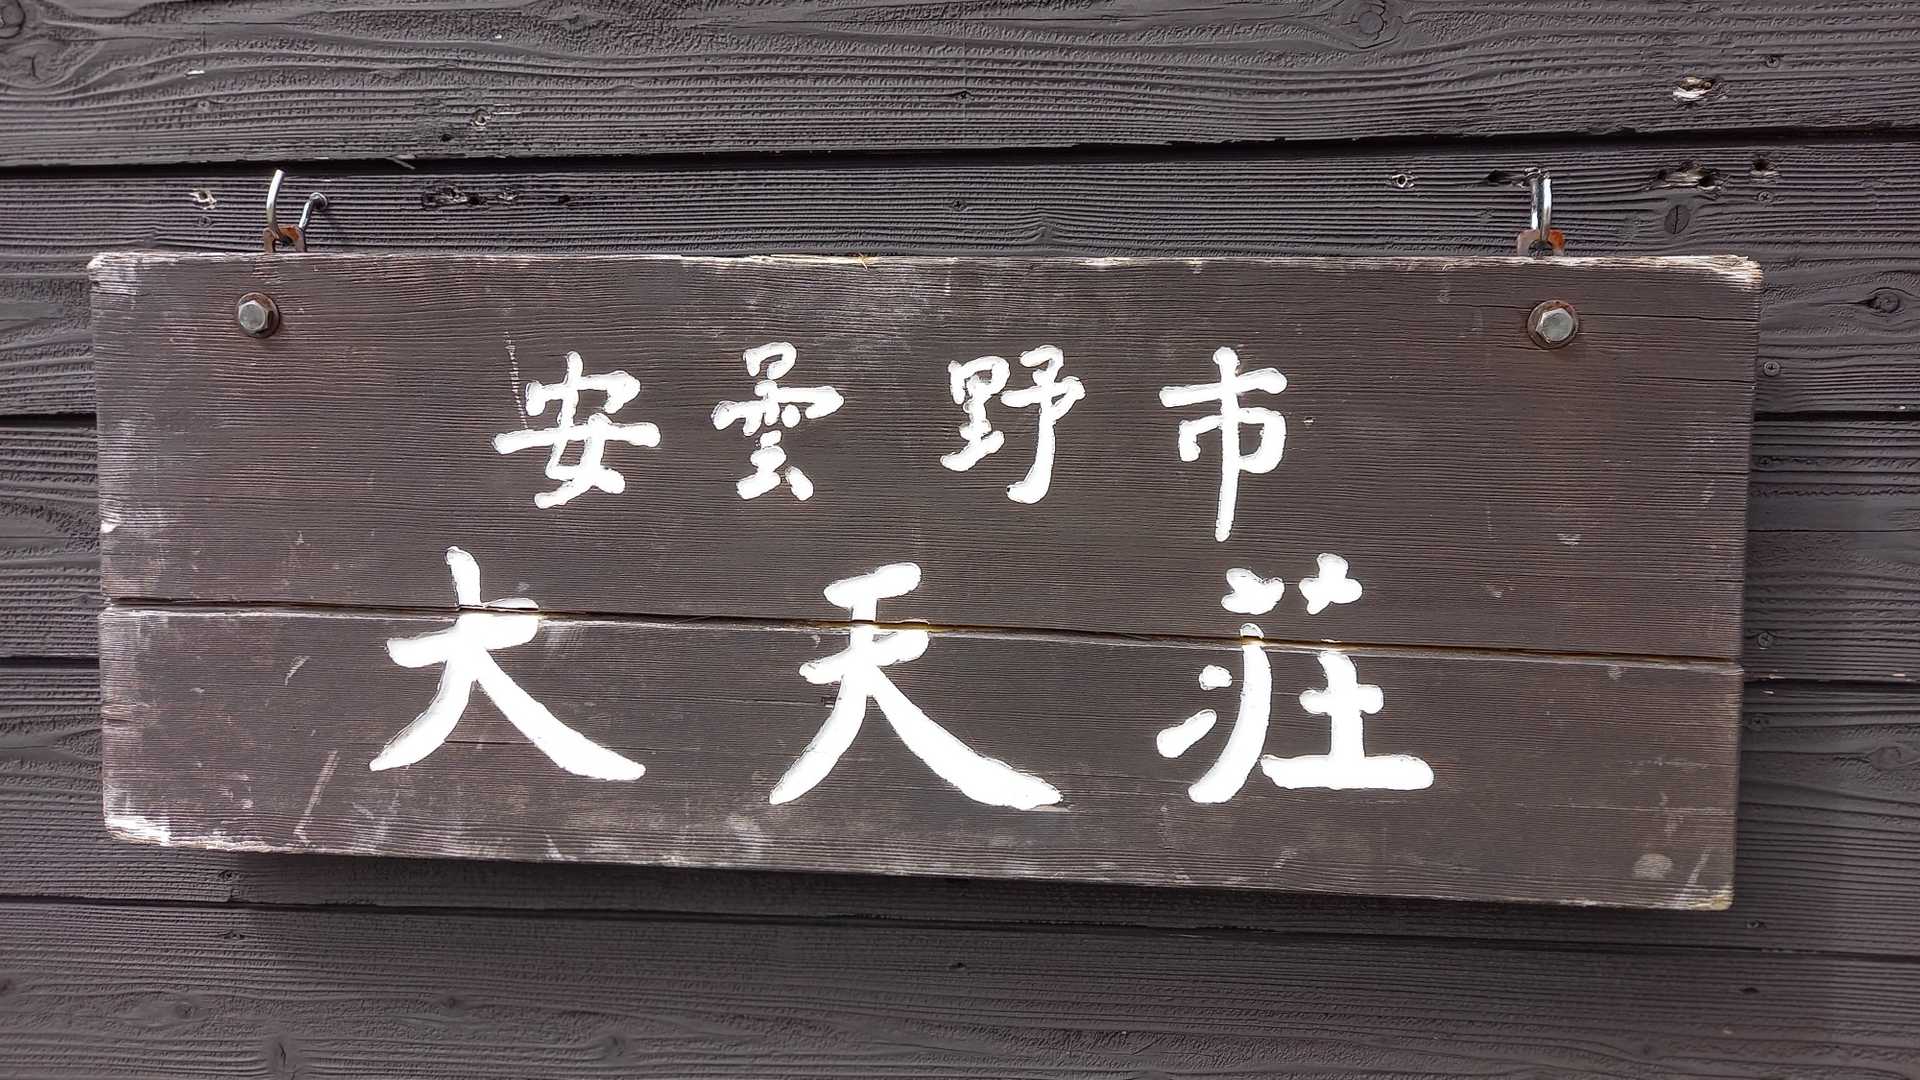 安曇野市
大天荘